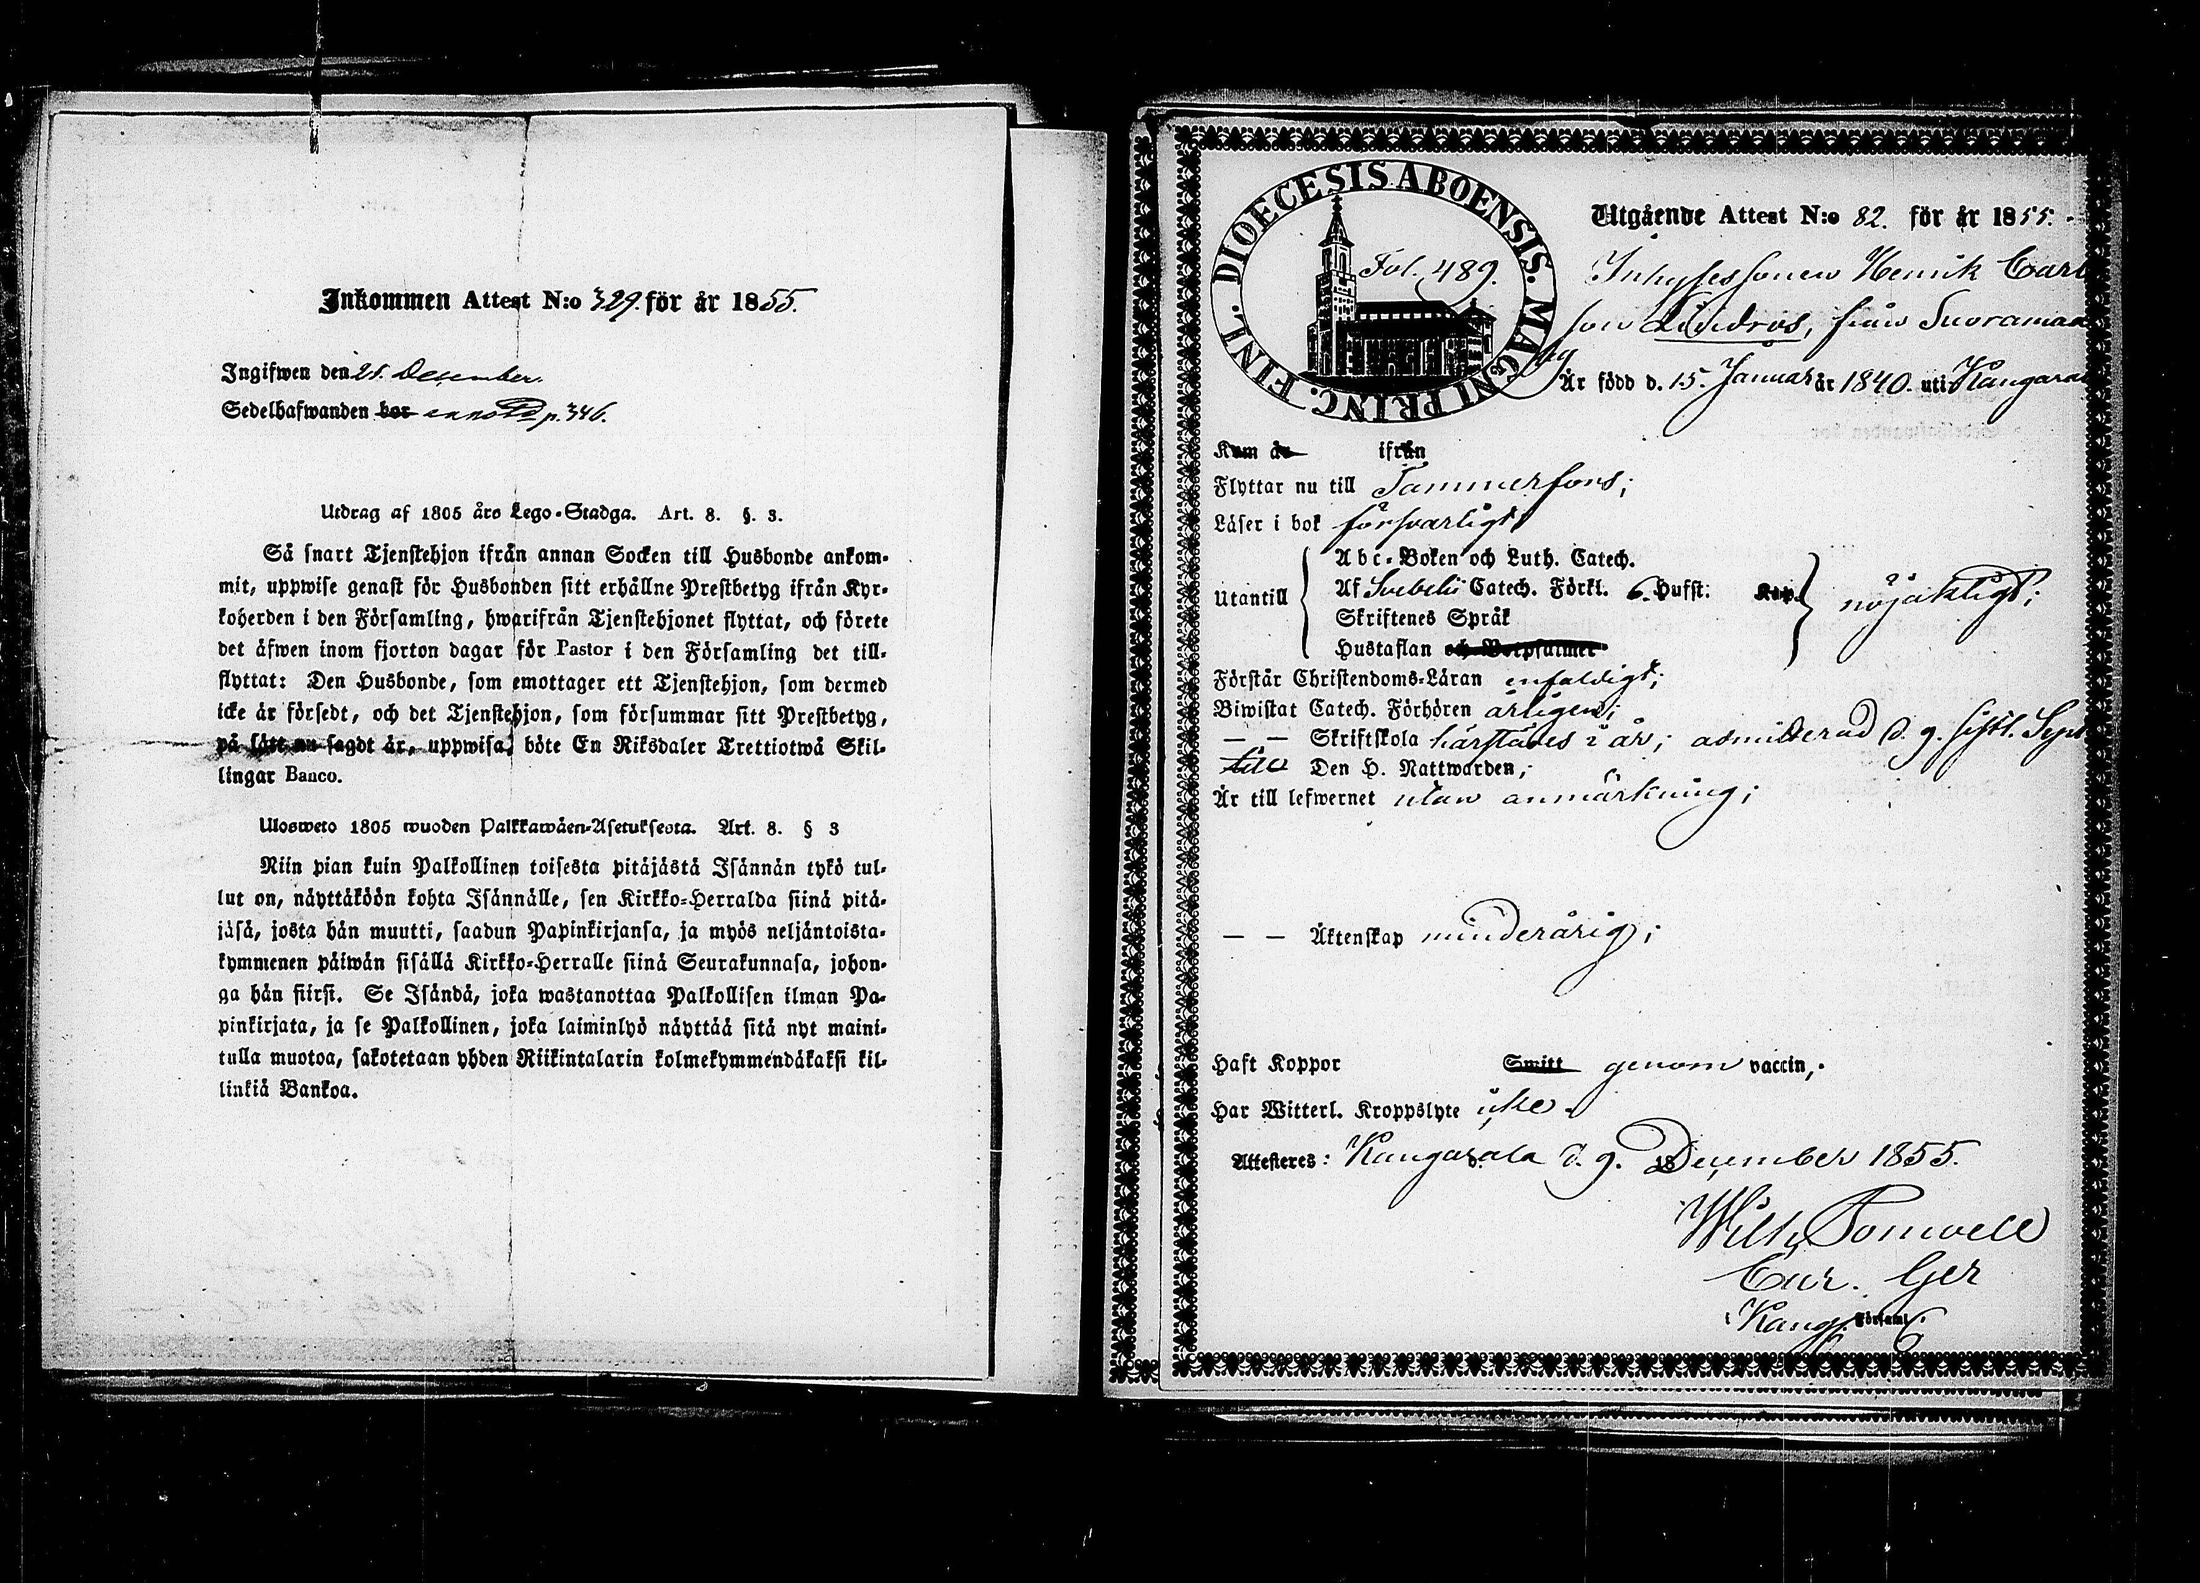 Inkommen Attest N:o 329. för år 1855.
Ingifwen den 21. December.
Sedelhafwanden bor p. 346.
Utdrag af 1805 års Lego-Stadga. Art. 8. §. 3.
Så snart Tjenstehjon ifrån annan Socken till Husbonde ankom-
mit, uppwise genast för Husbonden sitt erhållne Prestbetyg ifrån Kyr-
koherden i den Församling, hwarifrån Tjenstehjonet flyttat, och förete
det äfwen inom fjorton dagar för Pastor i den Församling det till-
flyttat: Den Husbonde, som emottager ett Tjenstehjon, som dermed
icke är försedt, och det Tjenstehjon, som försummar sitt Prestbetyg,
på sätt nu sagdt är, uppwisa, böte En Riksdaler Trettiotwå Skil-
lingar Banco.
Ulosweto 1805 wuoden Palkkawäen-Asetuksesta. Art. 8. § 3
Niin pian kuin Palkollinen toisesta pitäjästä Isännän tykö tul-
lut on, näyttäköön kohta Isännälle, sen Kirkko-Herralda siinä pitä-
jäsä, josta hän muutti, saadun Papinkirjansa, ja myös neljäntoista-
kymmenen päiwän sisällä Kirkko-Herralle siinä Seurakunnasa, johon-
ga hän siirsi. Se Isändä, joka wastanottaa Palkollisen ilman Pa-
pinkirjata, ja se Palkollinen, joka laiminlyö näyttää sitä nyt maini-
tulla muotoa, sakotetaan yhden Riikintalarin kolmekymmendäkaksi kil-
linkiä Bankoa.
DIOECESIS ABOENSIS. MAGNI PRINC. FINL.
Fol. 489.
Utgående Attest N:o 82. för år 1855.
Inhysessonen Henrik Carl
son Lindros, från Suorama
Är född d. 15. Januar år 1840. uti Kangasa
Kom år ifrån
Flyttar nu till Tammerfors;
Läser i bok försvarligt;
Abc-Boken och Luth. Catech.
Utantill Af Svebelii Catech. Förkl. 6. Hufst: Kap. nöjaktligt;
Skriftenes Språk
Hustaflan och Botpsalmer
Förstår Christendoms-Läran enfaldigt;
Biwistat Catech. Förhören årligen;
— — Skriftskola härstädes i år; admitterad d. 9. sistl. Sept
till Den H. Nattwarden,
Är till lefwernet utan anmärkning;
— — Äktenskap minderårig;
Haft Koppor Smitt genom vaccin,
Har Witterl. Kroppslyte icke.
Attesteres: Kangasala d. 9. December 1855.
Wilh. Tomvell
Cur. Ger
Kang. Församl.